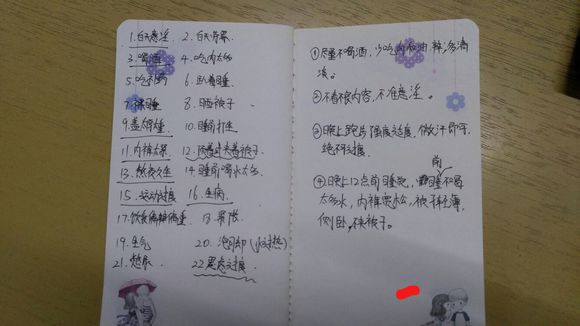 1.白天意淫 2.白天
3.喝酒 4.吃肉太多
5.吃补药 6.趴着睡
7.裸睡 8.晒被子
9.盖太厚睡 10.睡前打坐
11.内裤太紧 12.着被子
13.熬夜久坐 14.睡前喝水太多
15.运动过度 16.生病
17.饮食偏辣偏重 18.
19.生气 20.泡脚(水过热)
21.憋尿 22.思虑过度
①尽量不喝酒,少吃肉和油,辣,多清
淡。
②不看不良内容,不准意淫。
③晚上跑步强度适度,微汗即可,
绝不过度。
④晚上12点前睡觉,睡前不喝
太多水,内裤宽松,被子轻薄,
侧卧,夹被子。